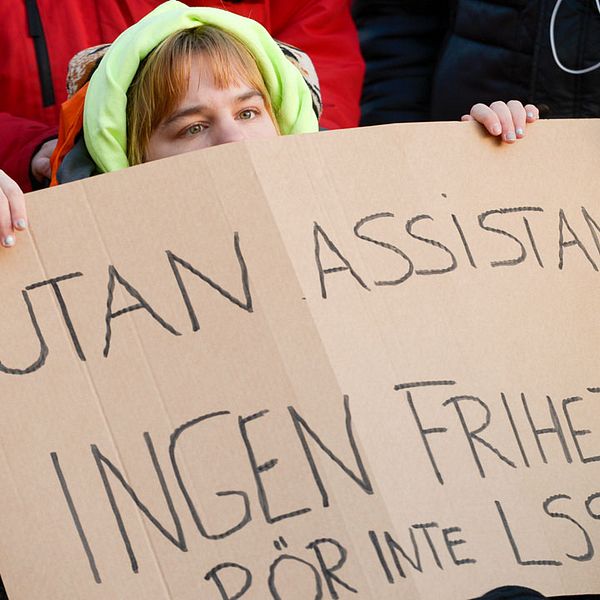 UTAN ASSISTAN
INGEN FRIHE
RÖR INTE LSS